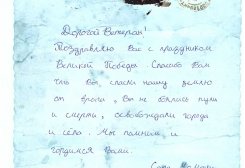 Дорогой Ветеран!
Поздравляю Вас с праздником
Великой Победы. Спасибо Вам
Вы, спасли нашу землю
от врага, Вы не боялись пули
и смерти, освобождали города
и сёла. Мы помним и
гордимся Вами.